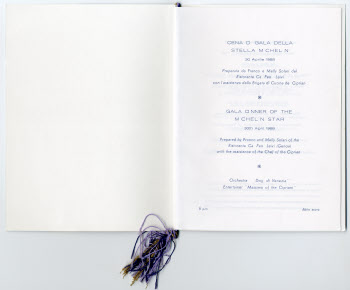 CENA DI GALA DELLA
STELLA MICHELIN
Aprile 1988
Preparata da Franco e Melly Solari del
Ristorante Ca Peo Leivi
con l'assistenza della Brigata di Cucina del Cipriani
GALA DINNER OF THE
MICHELIN STAR
April 1988
Prepared by Franco and Melly Solari of the
Ristorante Ca Peo Leivi (Genoa)
with the assistance of the Chef of the Cipriani
Orchestra
8 p.m.